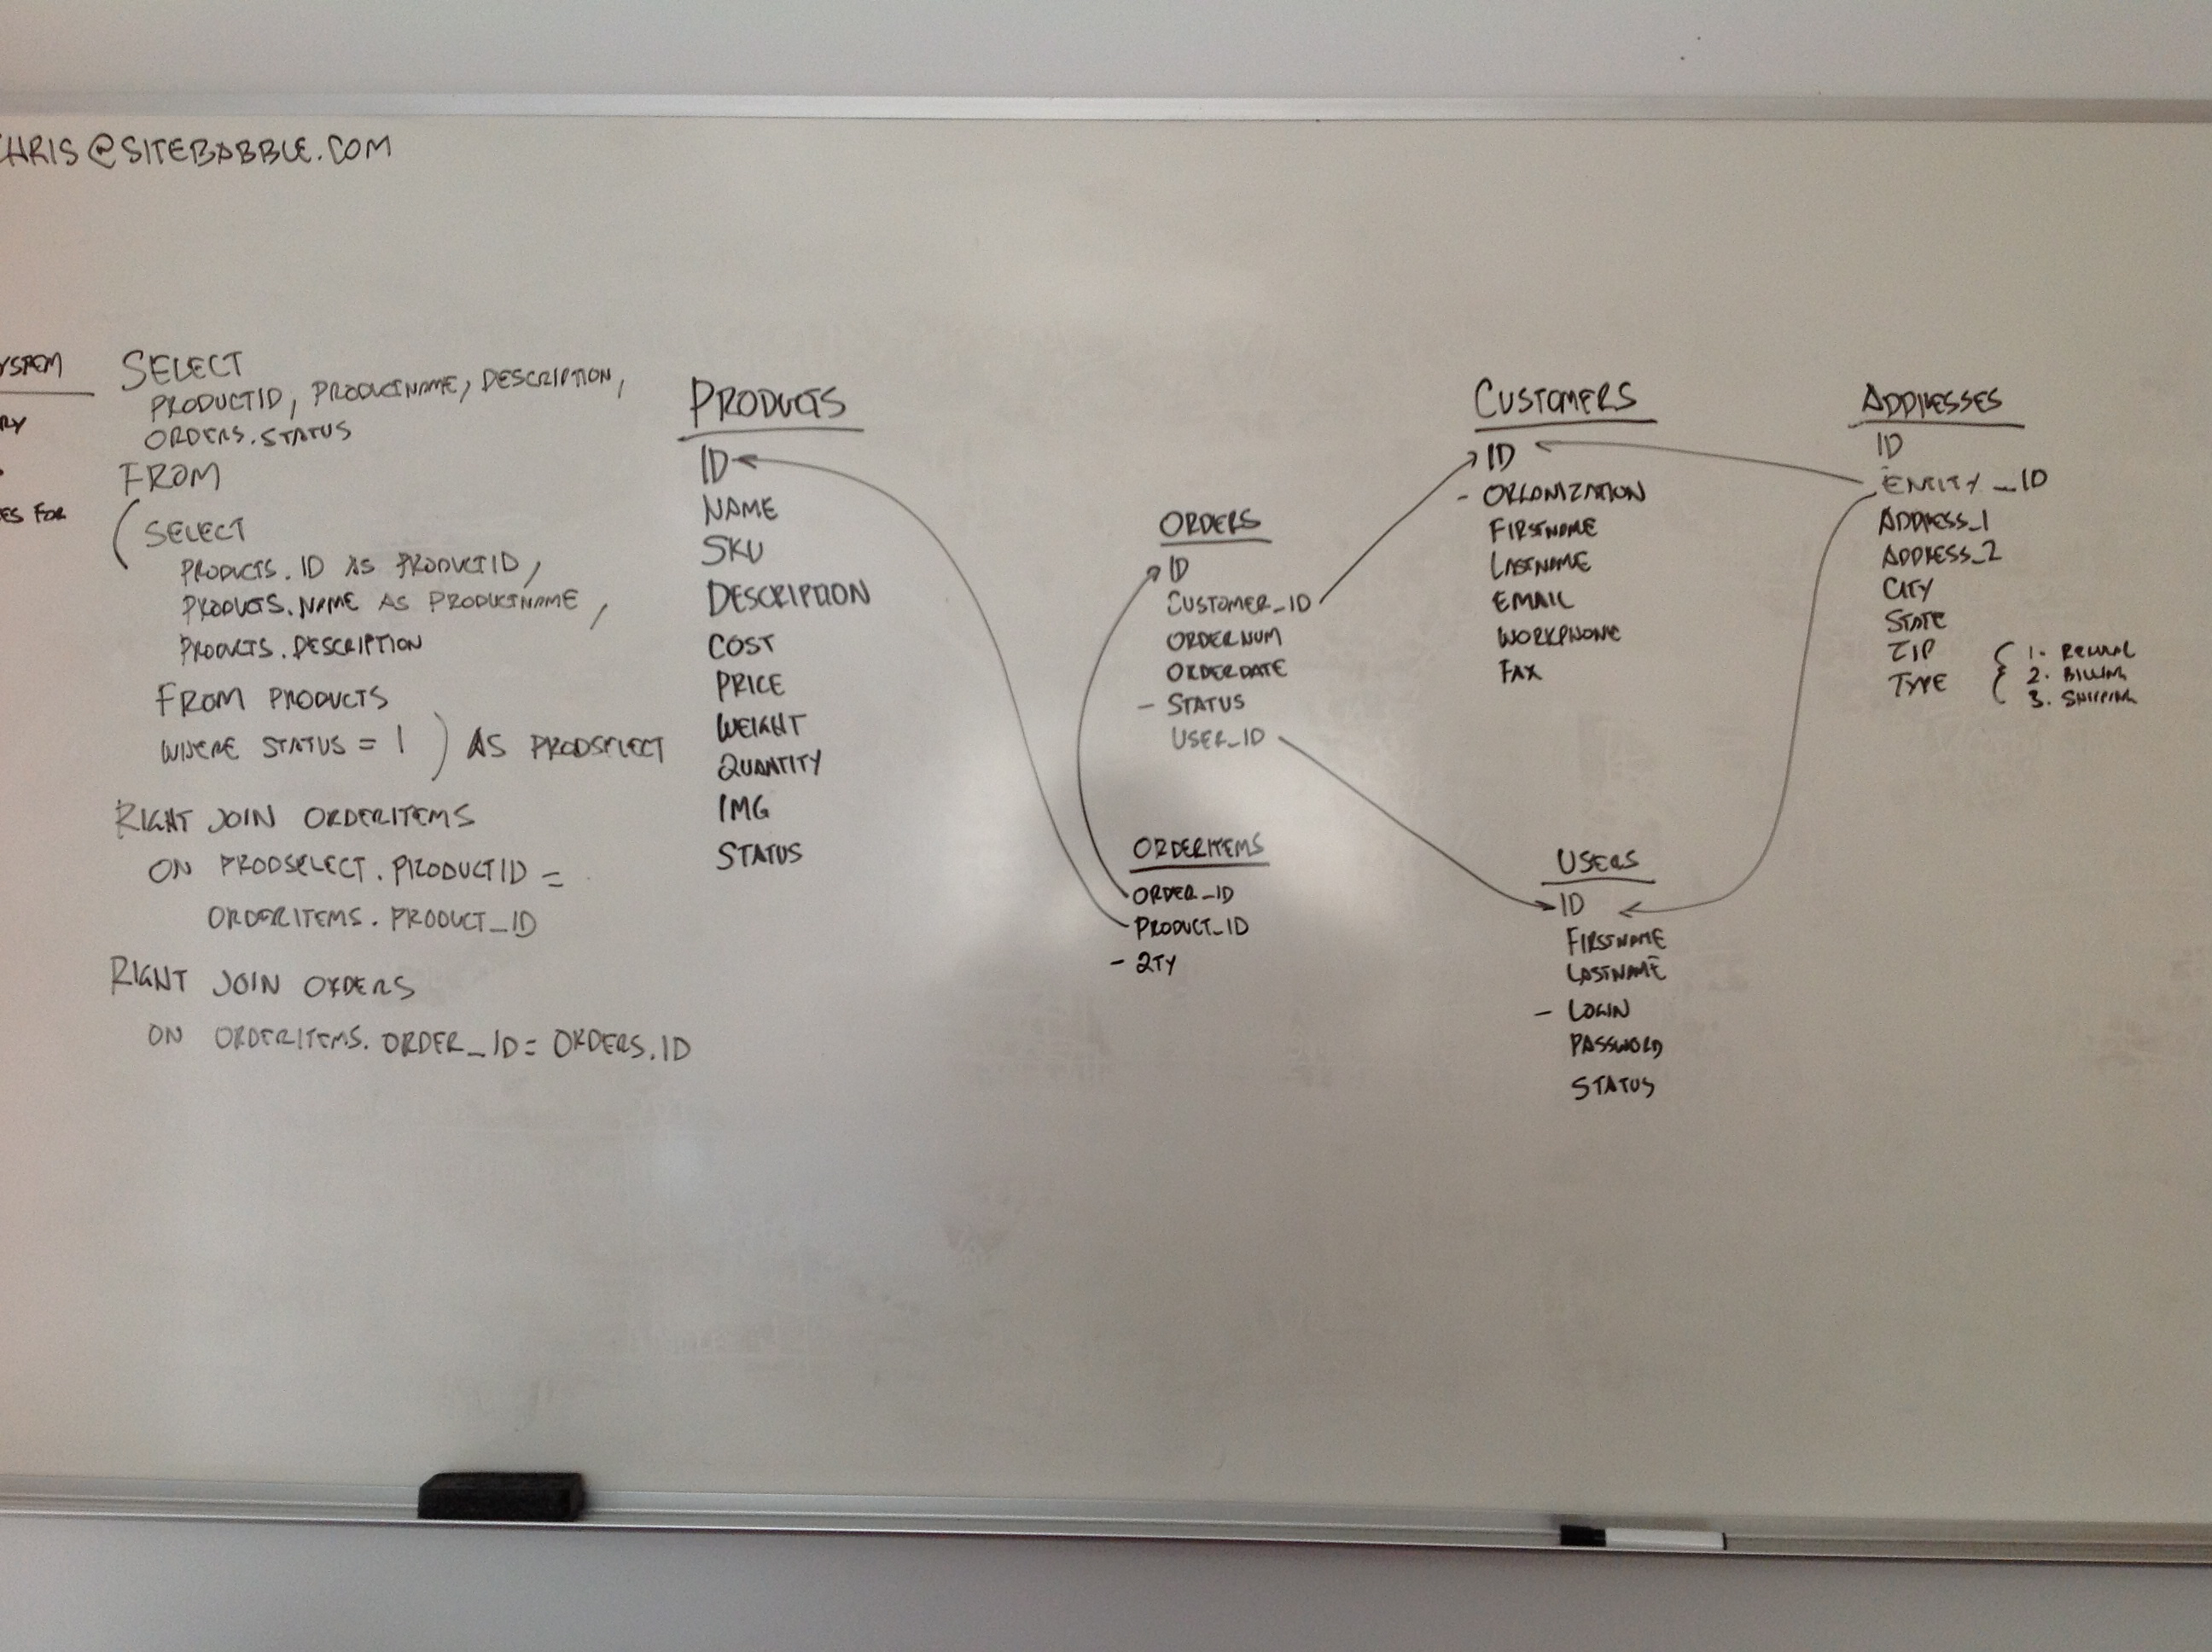 CHRIS@SITEBABBLE.COM
YSTEM
RY
ES FOR
SELECT
PRODUCTID, PRODUCTNAME, DESCRIPTION,
ORDERS.STATUS
FROM
( SELECT
PRODUCTS.ID AS PRODUCTID,
PRODUCTS.NAME AS PRODUCTNAME,
PRODUCTS.DESCRIPTION
FROM PRODUCTS
WHERE STATUS = 1 ) AS PRODSELECT
RIGHT JOIN ORDERITEMS
ON PRODSELECT.PRODUCTID =
ORDERITEMS.PRODUCT_ID
RIGHT JOIN ORDERS
ON ORDERITEMS.ORDER_ID = ORDERS.ID
PRODUCTS
ID
NAME
SKU
DESCRIPTION
COST
PRICE
WEIGHT
QUANTITY
IMG
STATUS
ORDERS
ID
CUSTOMER_ID
ORDERNUM
ORDERDATE
- STATUS
USER_ID
ORDERITEMS
ORDER_ID
PRODUCT_ID
- QTY
CUSTOMERS
ID
- ORGANIZATION
FIRSTNAME
LASTNAME
EMAIL
WORKPHONE
FAX
USERS
ID
FIRSTNAME
LASTNAME
- LOGIN
PASSWORD
STATUS
ADDRESSES
ID
ENTITY_ID
ADDRESS_1
ADDRESS_2
CITY
STATE
ZIP
TYPE
1.
2. BILLING
3. SHIPPING